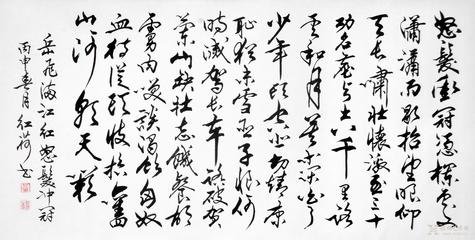 怒髮衝冠憑欄處
瀟瀟雨歇抬望眼仰
天長嘯壯懷激烈三十
功名塵與土八千里路
雲和月莫等閒白了
少年頭空悲切靖康
恥猶未雪臣子恨何
時滅駕長車踏破賀
蘭山缺壯志飢餐胡
虜肉笑談渴飲匈奴
血待從頭收拾舊
山河朝天闕
岳飛滿江紅怒髮冲冠
丙申春月紅荷書